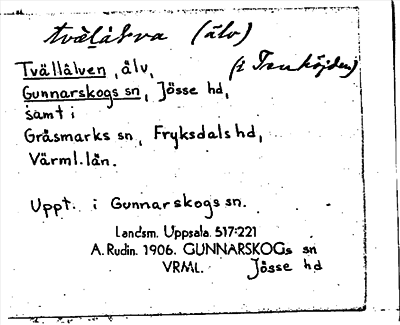 tväḷåkra (älv)
Tvällälven, älv, (i Treuköjden)
Gunnarskogs sn, Jösse hd,
samt i
Gräsmarks sn, Fryksdals hd,
Värml. län.
Uppt. i Gunnarskogs sn.
Landsm. Uppsala. 517:221
A. Rudin. 1906. GUNNARSKOGs sn
VRML. Jösse hd